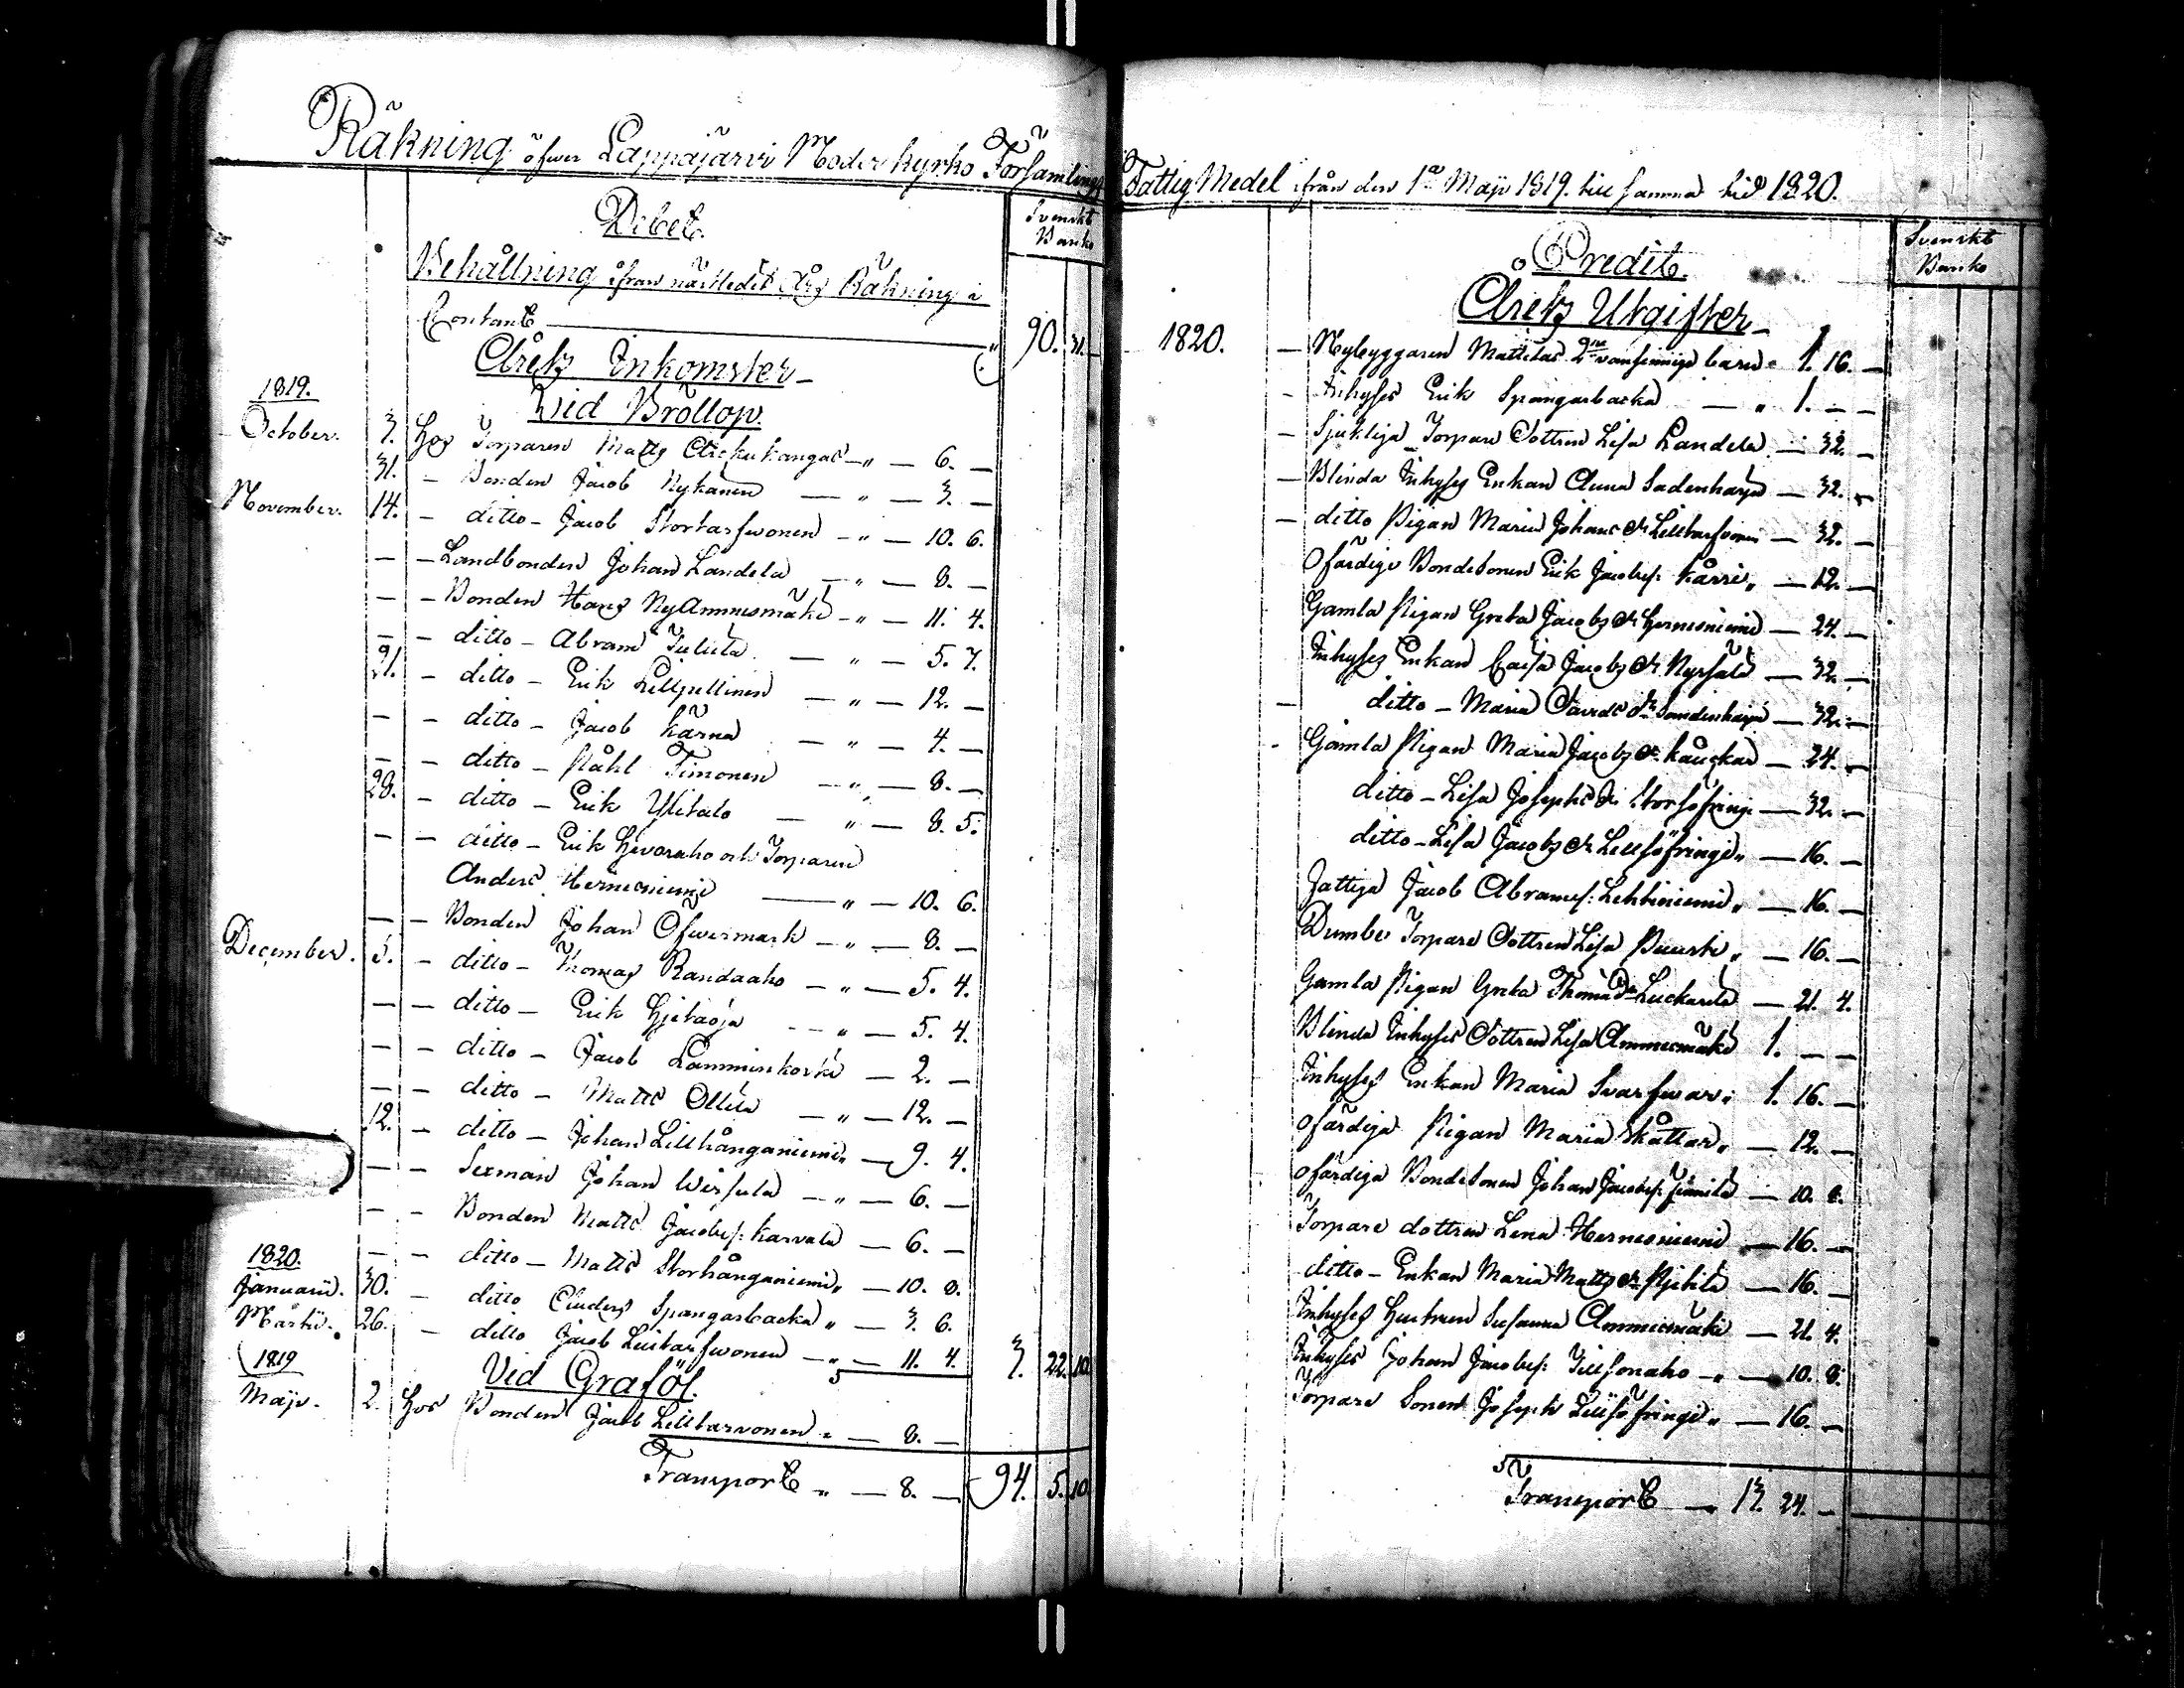 Räkning öfwer Lappajärvi Moderkyrko Församlings
Debet.
Svenskt Banko
Behållning ifrån nästledet Års Räkning i
Contant — " 90. 31. —
Årets Inkomster —
Vid Bröllop.
1819.
October. 3. Hos Torparen Matts — " — 6. —
31. — Bonden Jacob Nykänen — " — 3. —
November. 14. — ditto — Jacob Stortarfwonen — " — 10. 6.
— — Landbonden Johan Landela — " — 8. —
— — Bonden Hans NyAmmesmäki — " — 11. 4.
— — ditto — Abram — " — 5. 7.
21. — ditto — Erik Lillpeltinen — " — 12. —
— — ditto — Jacob Kärnä — " — 4. —
— — ditto — Påhl Timonen — " — 8. —
28. — ditto — Erik Ylitalo — " — 8. 5.
— — ditto — Erik och Torparen
Anders Hernesniemi — " — 10. 6.
— — Bonden Johan Öfwermark — " — 8. —
December. 5. — ditto — Thomas Randaaho — " — 5. 4.
— — ditto — Erik Hjetaoja — " — 5. 4.
— — ditto — Jacob Lamminkoski — 2. —
— — ditto — Matts Ollila — " — 12. —
12. — ditto — Johan Lillhånganiemi " — 9. 4.
— — Sexman Johan Wirsula — " — 6. —
— — Bonden Matts Jacobss: Karvala — 6. —
— — ditto — Matts Storhånganiemi " — 10. 8.
1820.
Januarii. 30. — ditto Anders Spangarbacka " — 3. 6.
Martii. 26. — ditto Jacob — " — 11. 4. 3. 22. 10.
Vid Graföl.
1819
Maji. 2. Hos Bonden Jacob Lilltarvonen " — 8. —
Transport " — 8. — 94. 5. 10.
Fattig Medel ifrån den 1a Maji 1819. till samma tid 1820.
Credit.
Svenskt Banko
Årets Utgifter —
1820. — Nybyggaren Mattilas 2ne vansinniga barn " 1. 16. —
— Inhyses Erik Spangarbacka — " 1. — —
— Sjukliga Torpare Dottren Lisa Landela — 32. —
— Blinda Inhyses Enkan Anna Sadenharju — 32. —
— ditto Pigan Maria Johans dr Lilltarfvonen — 32. —
Ofärdige Bondesonen Erik Jacobss: Kärri " — 12. —
Gamla Pigan Greta Jacobs dr Hernesniemi — 24. —
Inhyses Enkan Caisa Jacobs dr Nyssälä — 32. —
— ditto — Maria Davids dr Sandenharju — 32. —
— Gamla Pigan Maria Jacobs dr Kauckas — 24. —
ditto — Lisa Josephs dr Storsöfringi — 32. —
ditto — Lisa Jacobs dr Lillsöfringi " — 16. —
Fattiga Jacob Abramss: Lehtiniemi " — 16. —
Dumbe Torpare Dottren Lisa Puurti " — 16. —
Gamla Pigan Greta Thomæ dr Luckarila — 21. 4.
Blinda Inhyses Dottren Lisa Ammesmäki 1. — —
Inhyses Enkan Maria Svarfwar " 1. 16. —
Ofärdiga Pigan Maria Skåttar " — 12. —
Ofärdiga Bondesonen Johan Jacobss: — 10. 8.
Torpare dottren Lena Hernesniemi " — 16. —
ditto — Enkan Maria Matts dr — 16. —
Inhyses Hustrun Susanna Ammesmäki — 21. 4.
Inhyses Johan Jacobss: — " — 10. 8.
Torpare Sonen Joseph Lillsöfringi " — 16. —
Transport — " 13. 24. —